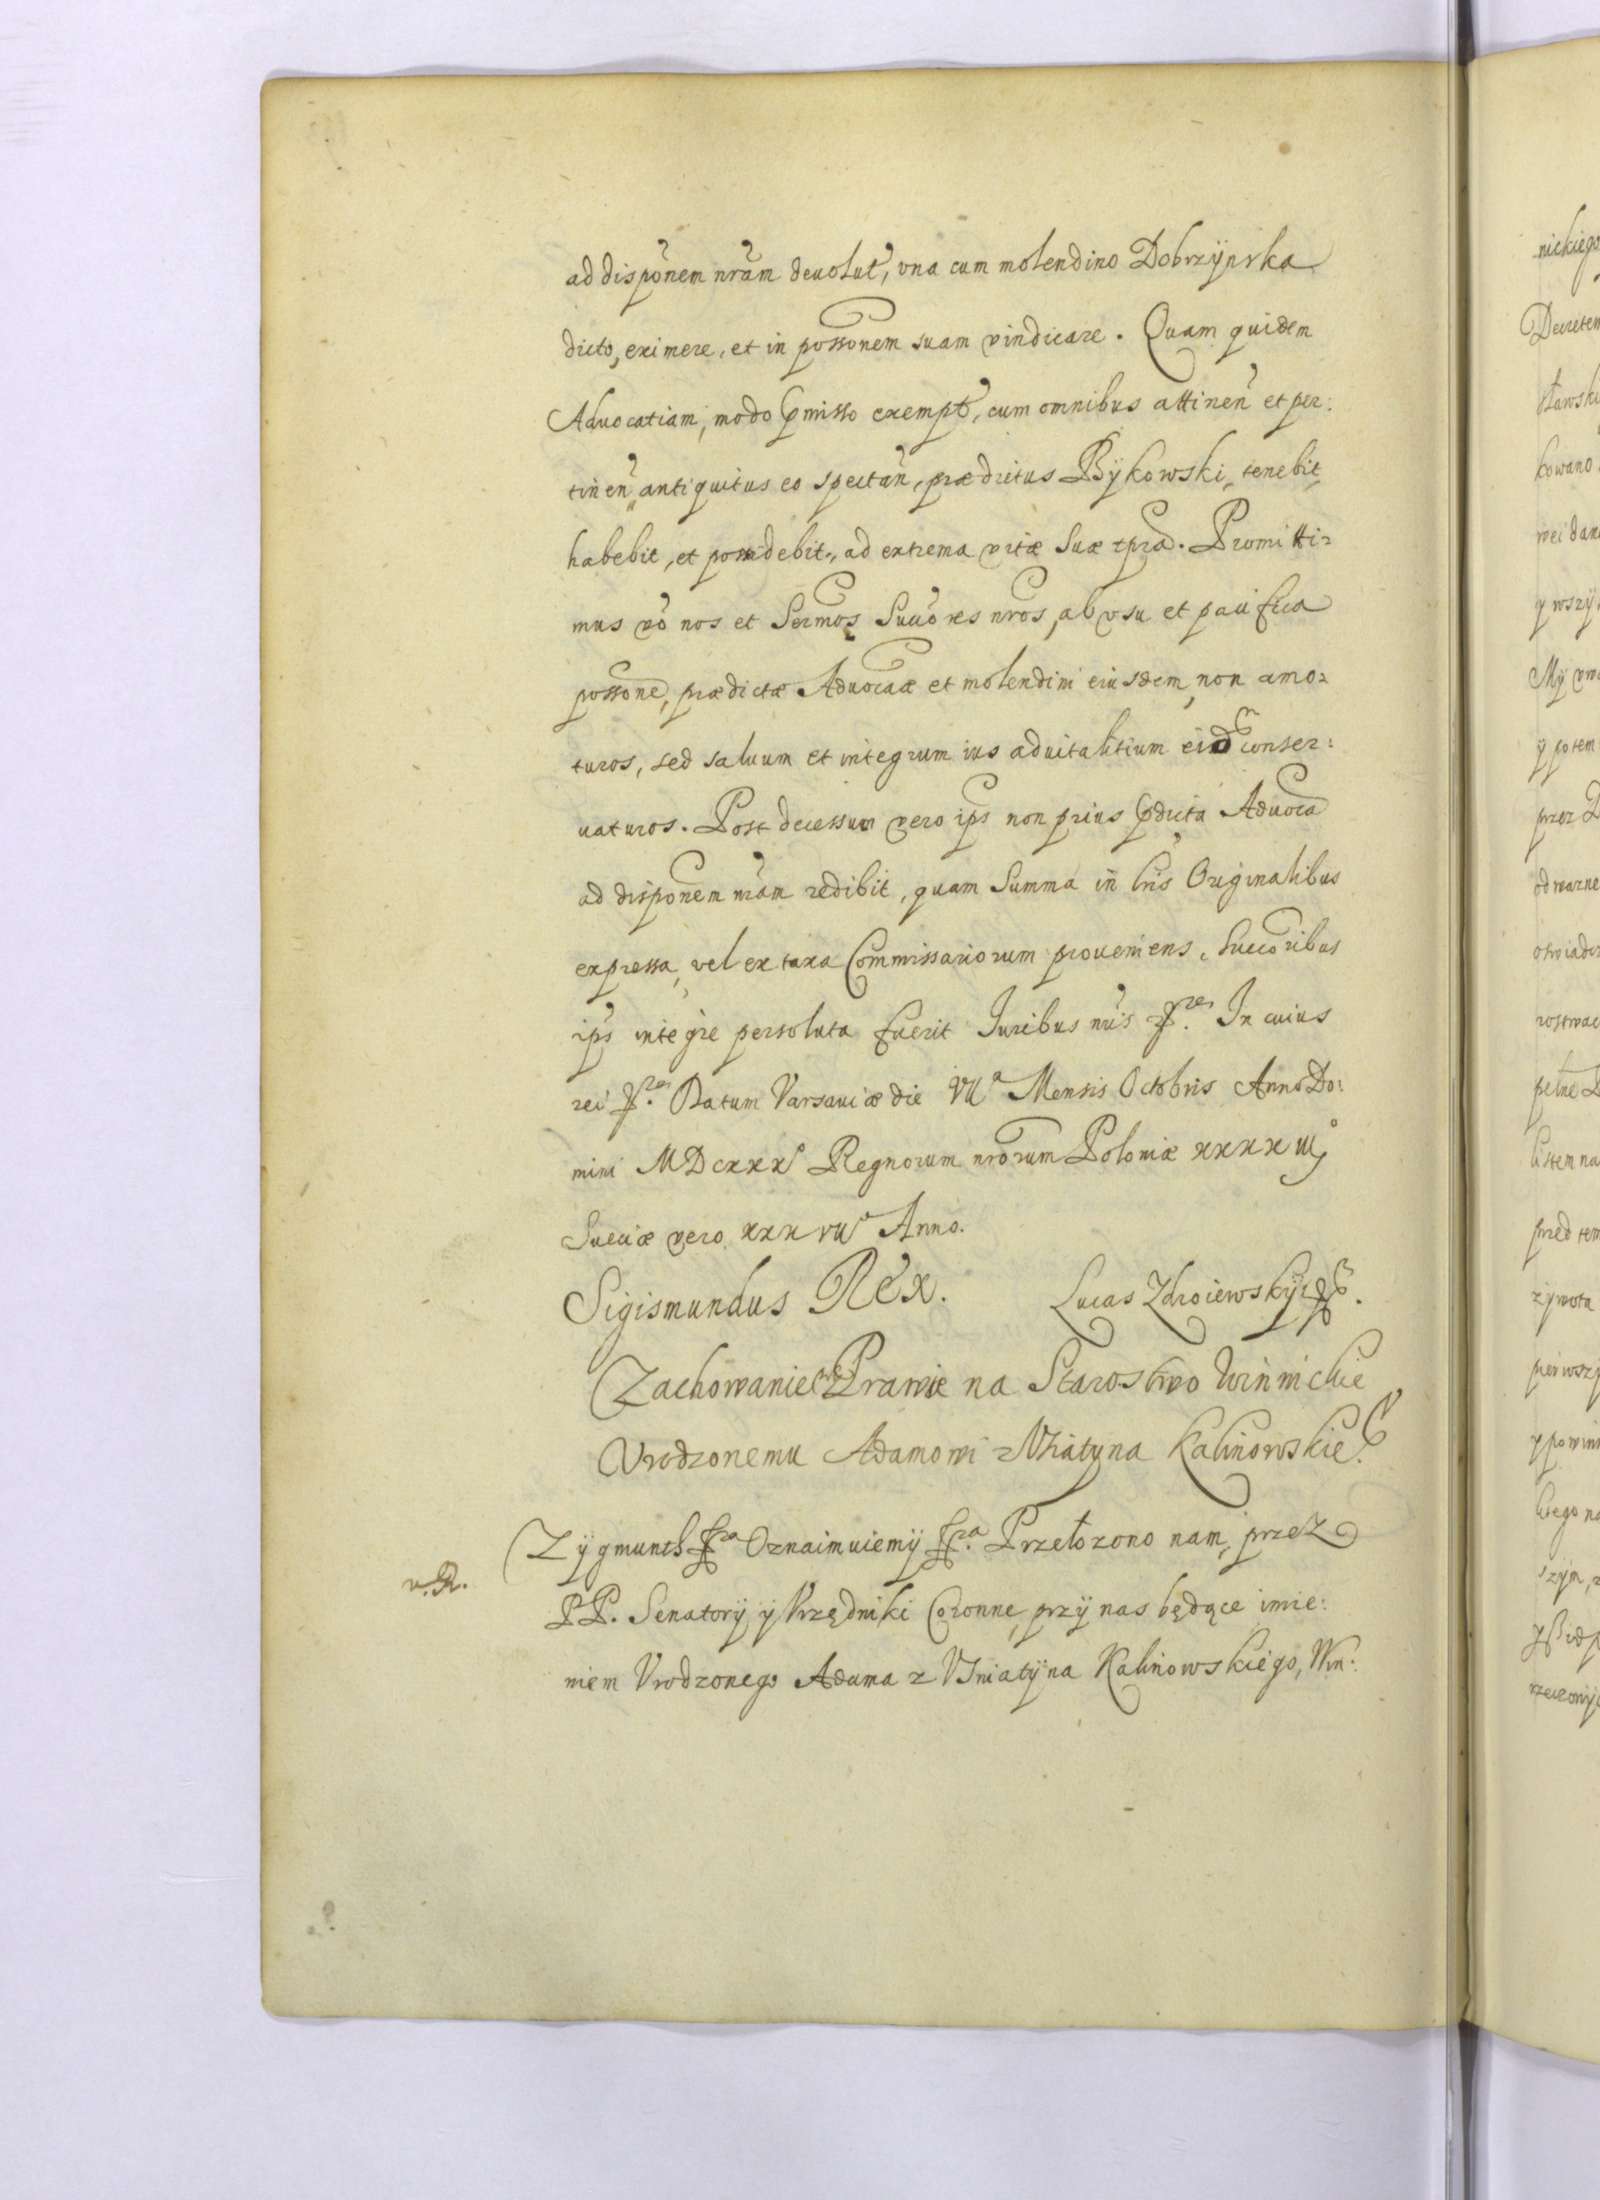 ad dispõnem nrãm deuolut, vna cum molendino Dobrzÿnska
dicto, eximere, et in possonem suam vindicare. Quam quidem
Aduocatiam, modo pmisso exempt, cum omnibus attinen et per:
tinen antiquitus eo spectan, prædictus Bÿkowski, tenebit,
habebit, et possidebit, ad extrema vitæ suæ tpra. Promitti=
mus vo nos et Sermos Succores nros, ab vsu et pacifica
possone, prædictæ Aduocaæ et molendini eiusdem, non amo=
turos, sed saluum et integrum ius aduitalitium eidm conser:
uaturos. Post decessum vero ips non prius pdicta Aduoca
ad disponem nram redibit, quam Summa in lris Originalibus
expressa, vel ex taxa Commissariorum proueniens, Succoribus
ips integre persoluta fuerit Iuribus nris In cuius
rei Datum Varsauiæ die VIIa Mensis Octobris Anno Do:
mini MDCXXXo Regnorum nrorum Poloniæ XXXXIIIo
Sueciæ vero XXXVIIo Anno.
Sigismundus Rex. Lucas Zdroiewskÿ
Zachowanie Prawie na Starostwo Winnickie
Vrodzonemu Adamowi z Vsiatyna Kalinowskie
Zÿgmunth Oznaimuiemÿ Przełozono nam, przez
v. R.
PP. Senatorÿ ÿ Vrzędniki Coronne, przÿ nas będące imie:
niem Vrodzonego Adama z Vsniatÿna Kalinowskiego, Win:
nickiego
Decretem